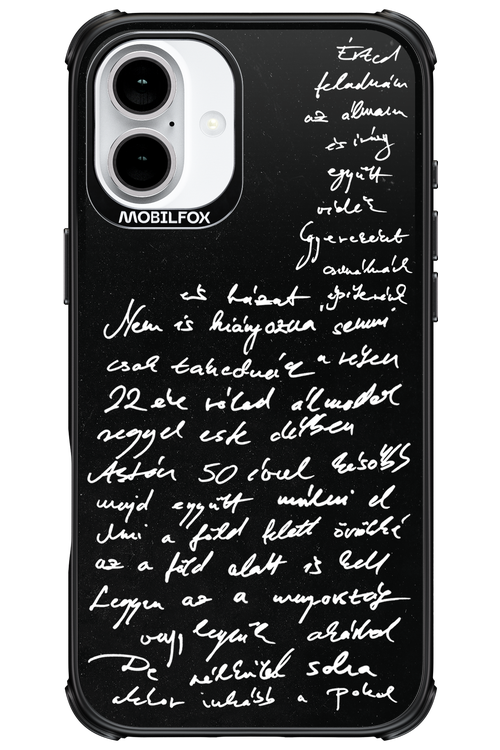 MOBILFOX
Érted
feladnám
az álmaim
és írny
együtt
vidék
Gyerekeket
csinálnánk
és házat építenénk
Nem is hiányozna semmi
csak takednánk a réten
22 éve rólad álmodok
reggel este délben
Aztán 50 évvel később
majd együtt múlni el
Ami a föld felett örökké
az a föld alatt is kell
Legyen az a mennyország
vagy legyünk akárhol
De nélküled soha
akkor inkább a Pokol